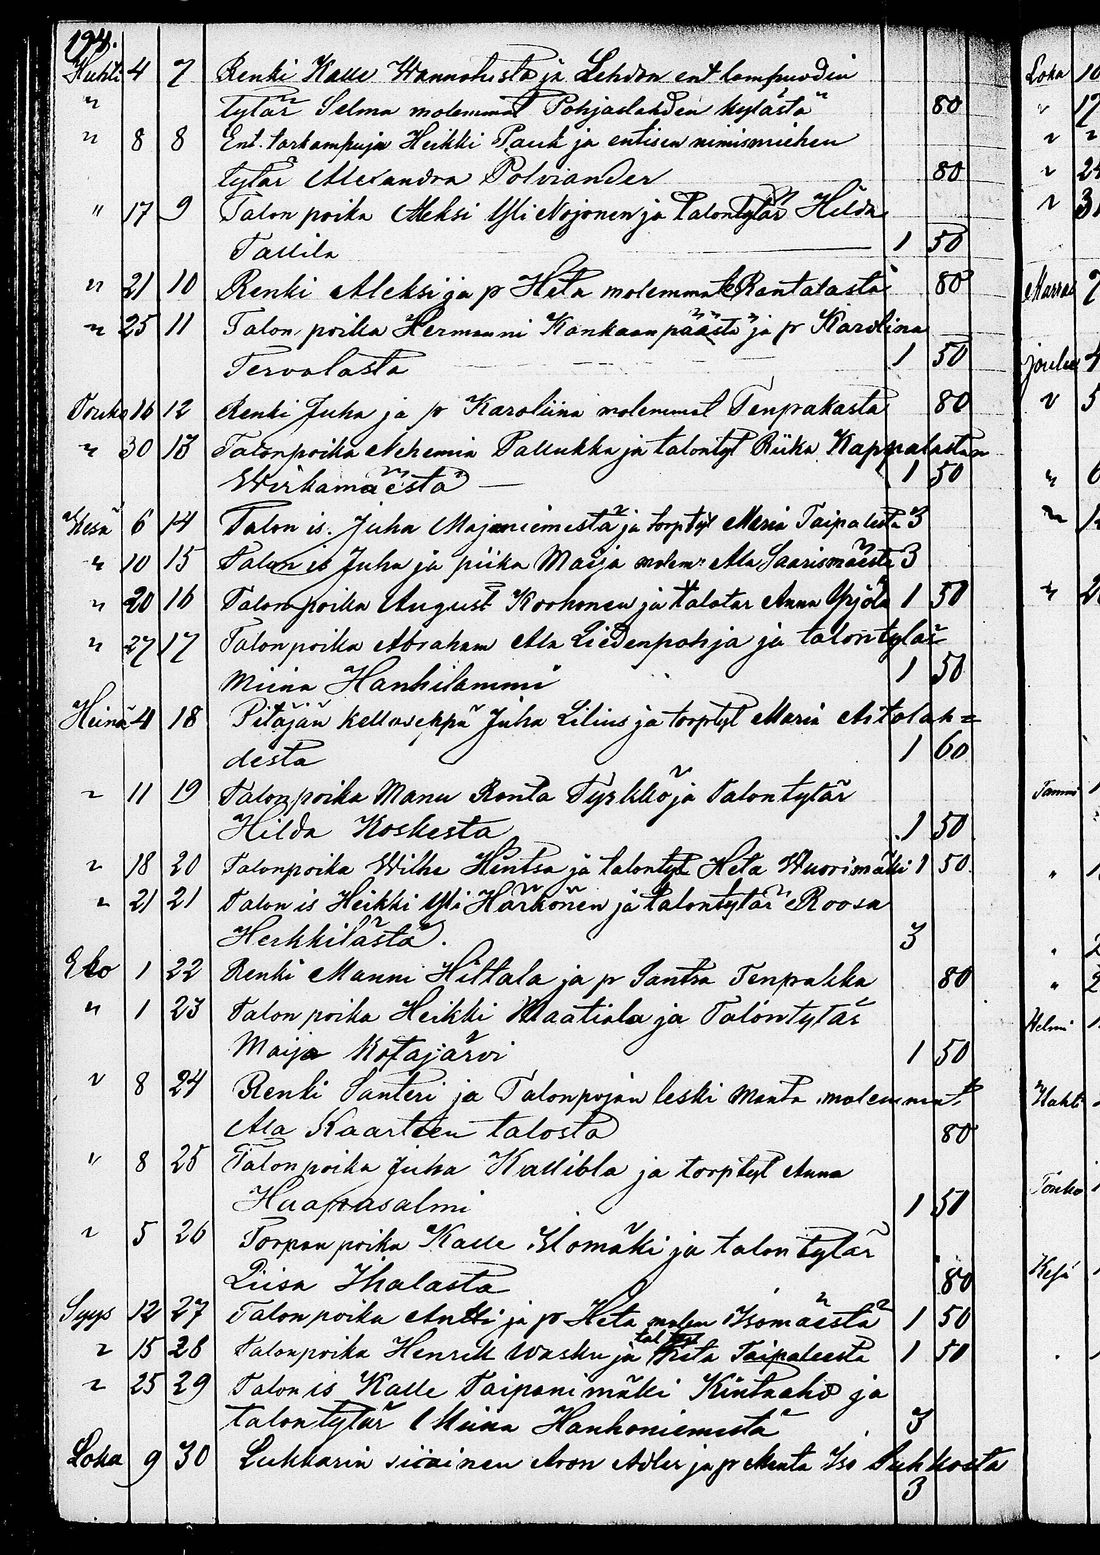 194.
Huhti 4 7 Renki Kalle Wannahista ja Lehdon ent lampuodin
" tytär Selma molemmat Pohjaslahden kylästä 80
" 8 8 Ent. Heikki Pauk ja entisen nimismiehen
tytär Alexandra Polviander 80
" 17 9 Talon poika Aleksi Yli Nojonen ja talontytär Hilda
Tallila 1 50
" 21 10 Renki Aleksi ja p Heta molemmat Rantalasta 80
" 25 11 Talon poika Hermanni Kankaanpäästä ja pr Karolina
Tervalasta 1 50
Touko 16 12 Renki Juha ja pr Karoliina molemmat Tenpakasta 80
" 30 13 Talonpoika Nehemia Pallukka ja talontyt Riika Kappalastan
Wirkamäestä 1 50
Kesä 6 14 Talon is. Juha Majaniemestä ja torptyt Maria Taipaleesta 3
" 10 15 Talon is Juha ja piika Maija molem Ala Saarismäestä 3
" 20 16 Talonpoika August Korhonen ja talotar Anna Yrjölä 1 50
" 27 17 Talonpoika Abraham Ala Liedenpohja ja talontytär
Miina Hanhilammi 1 50
Heinä 4 18 Pitäjän kelloseppä Juha Lilius ja torptyt Maria Aitolah=
desta 1 60
" 11 19 Talonpoika Manu Ranta Tyrkkö ja Talontytär
Hilda Koskesta 1 50
" 18 20 Talonpoika Wilha Hintsa ja talontyt Heta Wuorimäki 1 50
" 21 21 Talon is Heikki Yli Härkönen ja talontytär Roosa
Herkkilästä. 3
Elo 1 22 Renki Manni Hiltala ja pr Santra Tenpakka 80
" 1 23 Talon poika Heikki Maatiala ja Talontytär
Maija Kotajärvi 1 50
" 8 24 Renki Santeri ja Talonpojan leski Manta molemmat
Ala Kaarteen talosta 80
" 8 25 Talonpoika Juha Kallibla ja torptyt Anna
Haapasalmi 1 50
" 5 26 Torpan poika Kalle Ylomäki ja talontytär
Liisa Ihalasta 80
Syys 12 27 Talonpoika Antti ja pr Heta molem Isomäestä 1 50
" 15 28 Talonpoika Henrik Wasku ja Heta Taipaleesta 1 50
" 25 29 Talon is Kalle Taipanimäki Kintaaho ja
talontytär Miina Hankoniemestä 3
Loka 9 30 Lukkarin siiainen Aron Adler ja pr Manta Iso Suhkosta
3
Loka 10
" 17
" "
" 24
" 31
Marras 7
Joulu 4
" 5
" 6
Tammi
Helmi
Huhti
Touko
Kesä